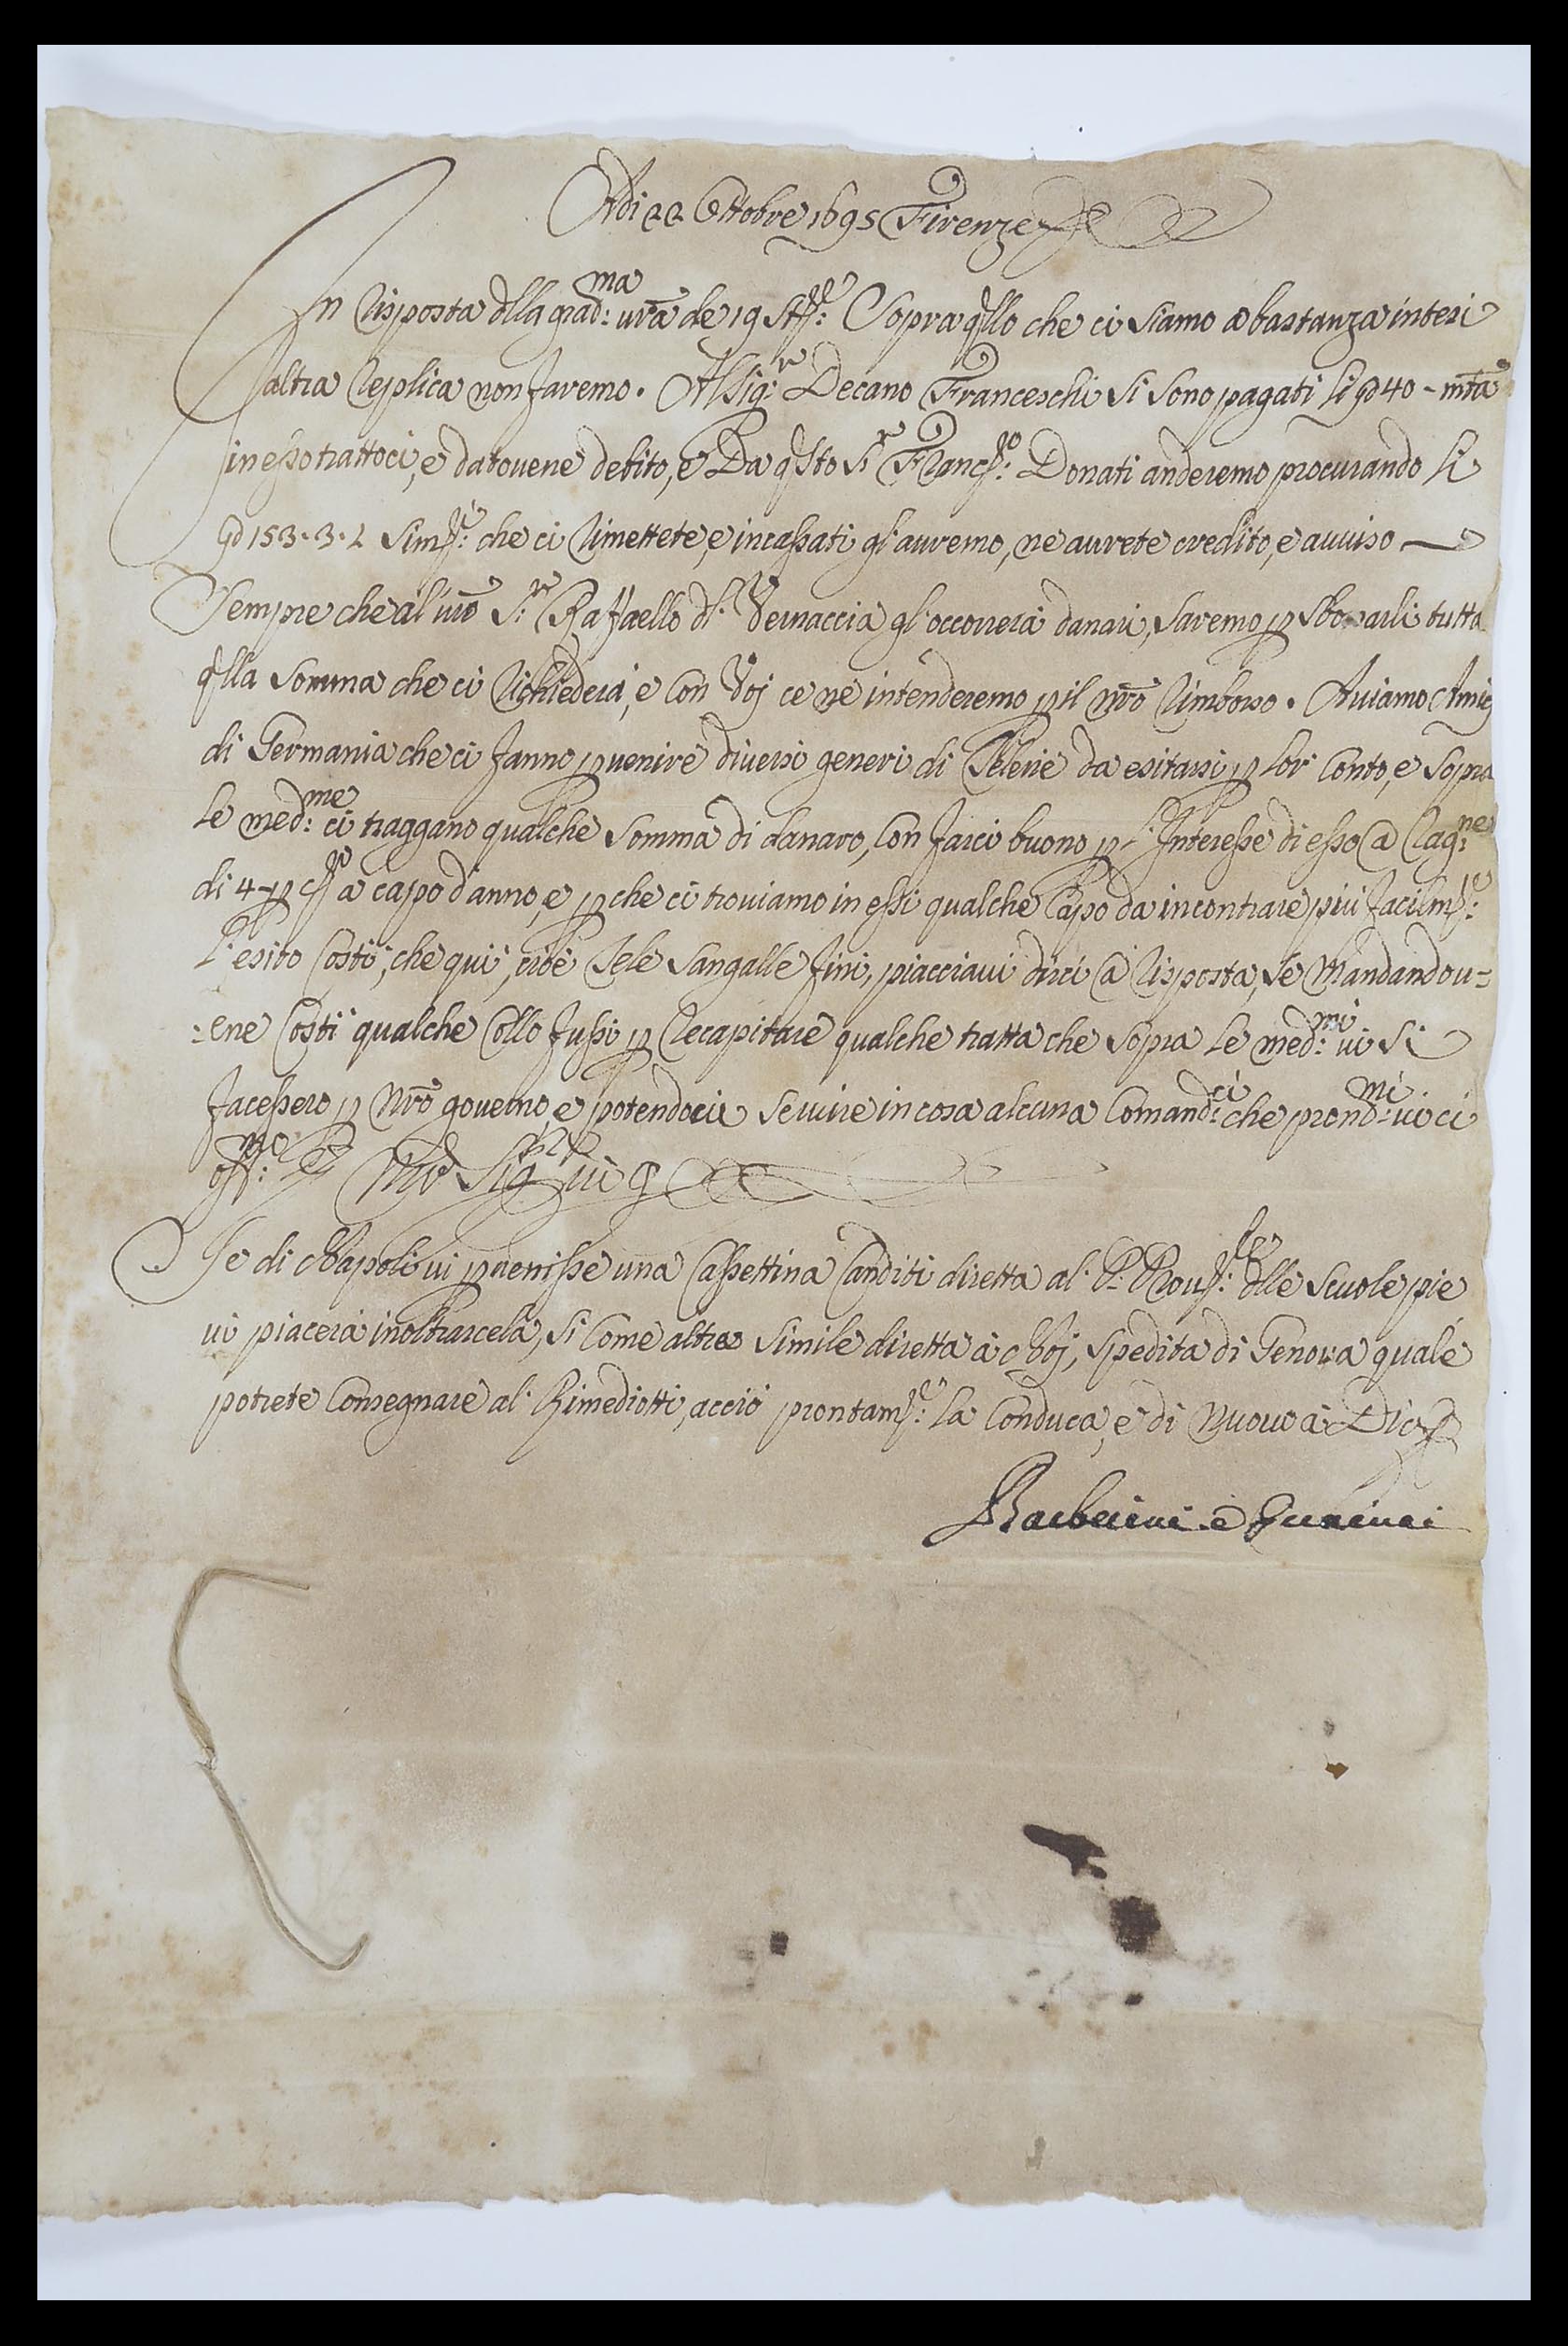 Adi 22 Ottobre 1695 Firenze
In risposta dlla grad:ma vrã de 19 stte: Sopra qllo che ci siamo a bastanza intesi
altra replica non faremo. Al Sig:r Decano Franceschi si sono pagati li 40 - mta
in esso trattoci, e datovene debito, e Da qsto S:r Francco: Donati anderemo procurando li
153.3.2 simte: che ci rimettete, e incassati gl'avremo, ne avrete credito, e avviso
Sempre che al vro S:r Raffaello dl. Vernaccia gl'occorrerà danari, saremo p sborsarli tutta
qlla somma che ci richiederà, e con Voj ce ne intenderemo p il nrõ rimborso. Aviamo Amici
di Germania che ci fanno pvenire diversi generi di Telerie da esitarsi p lor conto, e sopra
le med:me ci traggano qualche somma di danaro, con farci buono p l'Interesse di esso a rag:ne
di 4 - p cto a capo d'anno, e pche ci troviamo in essi qualche Capo da incontrare più facilmte:
l'esito costì, che quì, cioè Tele Sangalle fini, piacciavi dirci a risposta, se mandandov=
=ene costì qualche Collo fussi p recapitare qualche tratta che sopra le med:mi vi si
facessero p nrõ governo, e potendovi servire in cosa alcuna Comand:ci che prond:mi vi ci
Se di Napoli vi pvenisse una Cassettina Canditi diretta al P. Provle: dlle Scuole pie
vi piacerà inoltrarcela, si come altra simile diretta à Voj, spedita di Genova quale
potrete consegnare al Rimediotti, acciò prontamte: la conduca, e di nuovo à Dio
Barberini e